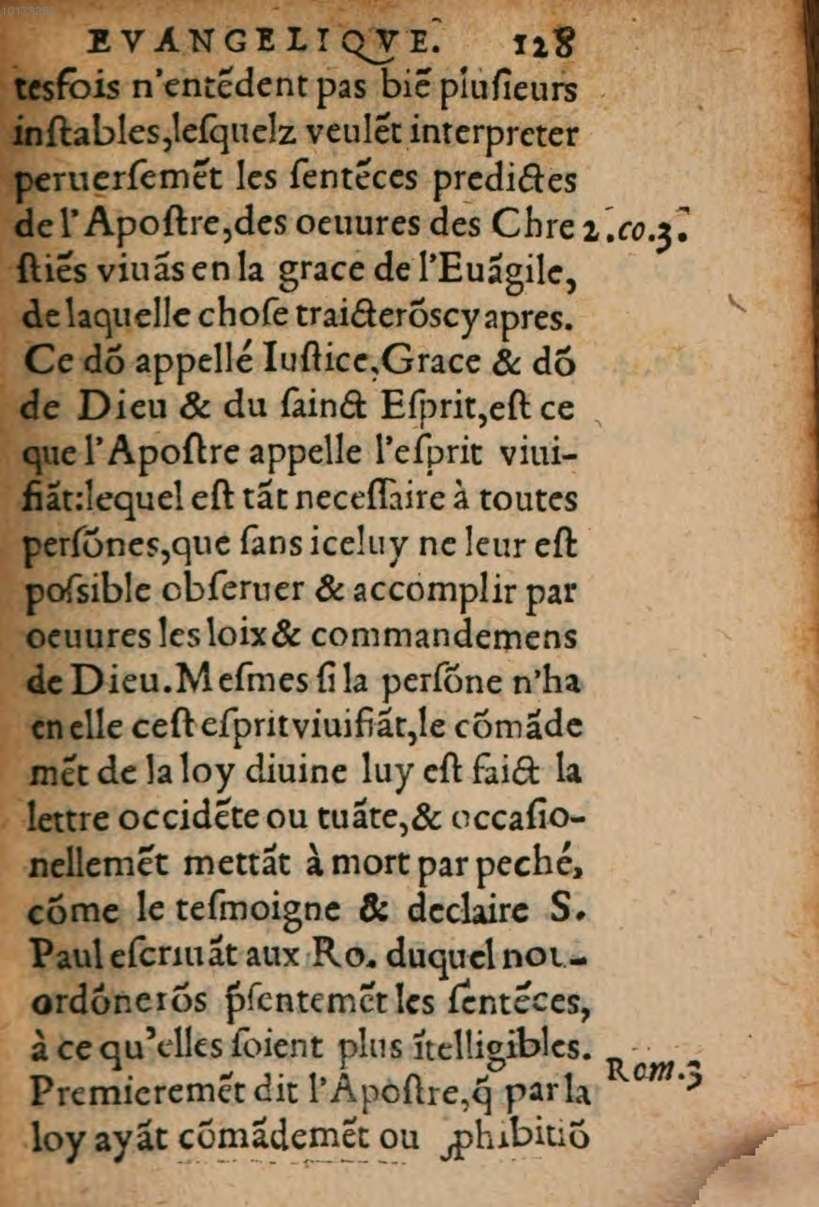 EVANGELIQVE. 128
tesfois n'entẽdent pas biẽ pluſieurs
inſtables,leſquelz veulẽt interpreter
peruerſemẽt les ſentẽces predictes
de l'Apoſtre,des oeuures des Chre 2.co.3.
ſtiẽs viuãs en la grace de l'Euãgile,
de laquelle choſe traicterõs cy apres.
Ce dõ appellé Iuſtice,Grace & dõ
de Dieu & du ſainct Eſprit,eſt ce
que l'Apoſtre appelle l'eſprit viui-
fiãt:lequel eſt tãt neceſſaire à toutes
perſõnes,que ſans iceluy ne leur eſt
poſsible obſeruer & accomplir par
oeuures les loix & commandemens
de Dieu.Meſmes ſi la perſõne n'ha
en elle ceſt eſprit viuifiãt,le cõmãde
mẽt de la loy diuine luy eſt faict la
lettre occidẽte ou tuãte,& occaſio-
nellemẽt mettãt à mort par peché,
cõme le teſmoigne & declaire S.
Paul eſcriuãt aux Ro. duquel nou-
ordõnerõs p̃ſentemẽt les ſentẽces,
à ce qu'elles ſoient plus ĩtelligibles.
Premieremẽt dit l'Apoſtre,q̃ par la Rom.3
loy ayãt cõmãdemẽt ou ꝓhibitiõ